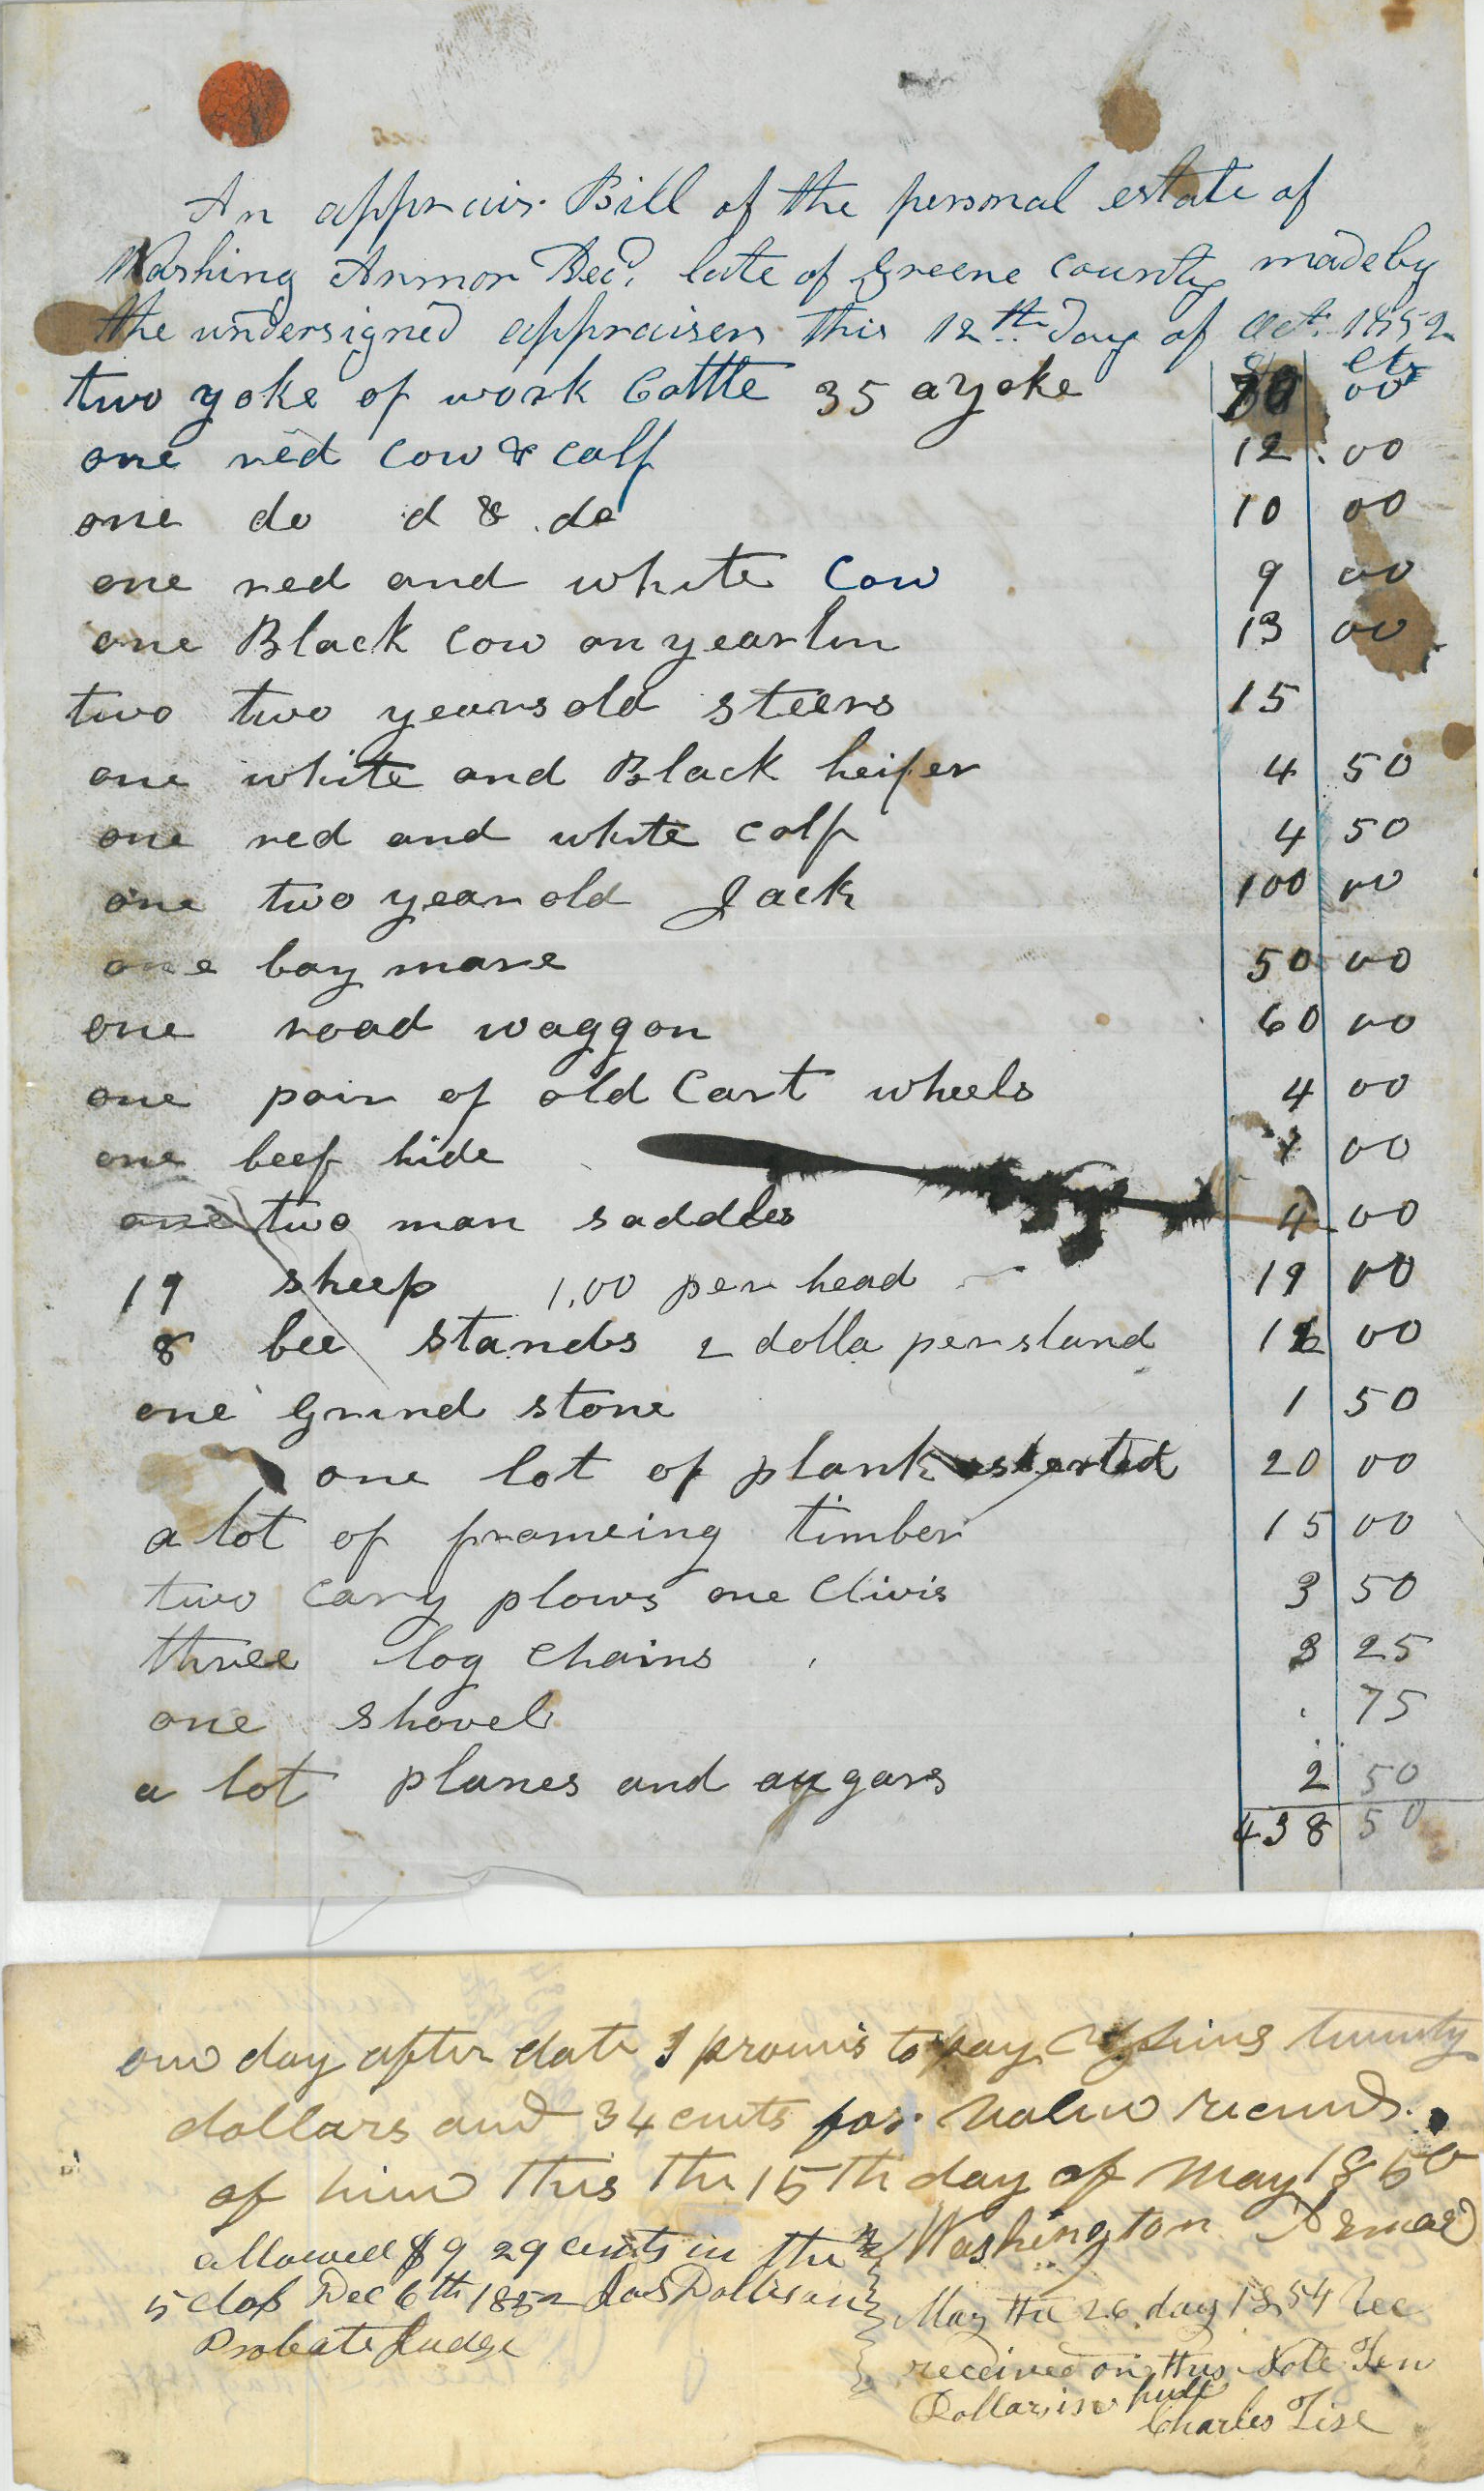 An apprais. Bill of the personal estate of
Washing Armor Decd. late of Greene County made by
the undersigned appraisers this 12th day of Oct. 1852
$ cts
two yoke of work Cattle 35 a yoke 70 00
one red cow & calf 12.00
one do d & do 10 00
one red and white Cow 9 00
one Black cow an yearlin 13 00
two two years old steers 15
one white and Black heifer 4 50
one red and white calf 4 50
one two year old Jack 100 00
one bay mare 50 00
one road waggon 60 00
one pair of old Cart wheels 4 00
one beef hide 1 00
one two man saddles 4 00
19 sheep 1,00 per head 19 00
8 bee stands 2 dolla per stand 16 00
one Grind stone 1 50
one lot of plank 20 00
a lot of frameing timber 15 00
two cary plows one Clivis 3 50
three log Chains 3 25
one shovel 75
a lot planes and augars 2 50
438 50
one day after date I promis to pay Sims twenty
dollars and 34 cents for value receivd.
of him this the 15th day of May 1850
Washington Armor
allowed $9 29 cents in the
5 clas Dec 6th 1852 Jos Dollison
Probate Judge
May the 26 day 1854 Rec
received on this Note Ten
Dollars in full
Charles Tise